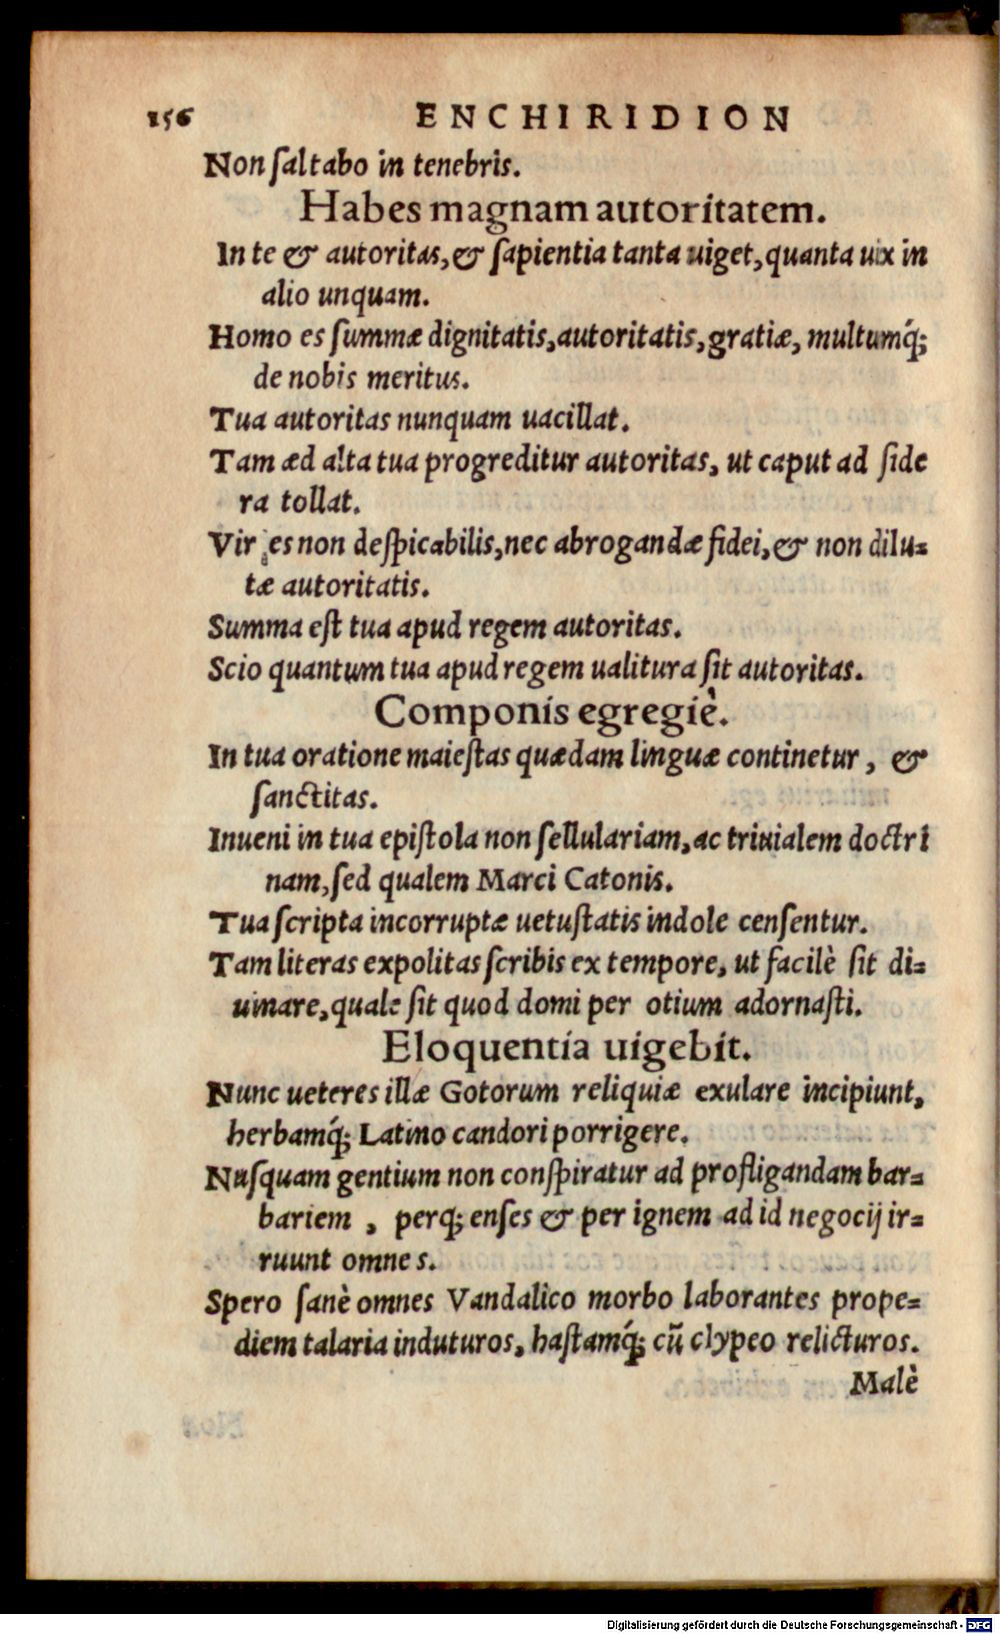 156 ENCHIRIDION
Non ſaltabo in tenebris.
Habes magnam autoritatem.
In te & autoritas, & ſapientia tanta uiget, quanta uix in
alio unquam.
Homo es ſummæ dignitatis, autoritatis, gratiæ, multumq́;
de nobis meritus.
Tua autoritas nunquam uacillat.
Tam æd alta tua progreditur autoritas, ut caput ad ſide
ra tollat.
Vir es non deſpicabilis, nec abrogandæ fidei, & non dilu⸗
tæ autoritatis.
Summa eſt tua apud regem autoritas.
Scio quantum tua apud regem ualitura ſit autoritas.
Componis egregiè.
In tua oratione maieſtas quædam linguæ continetur, &
ſanctitas.
Inueni in tua epiſtola non ſellulariam, ac triuialem doctri
nam, ſed qualem Marci Catonis.
Tua ſcripta incorruptæ uetuſtatis indole cenſentur.
Tam literas expolitas ſcribis ex tempore, ut facilè ſit di⸗
uinare, quale ſit quod domi per otium adornaſti.
Eloquentia uigebit.
Nunc ueteres illæ Gotorum reliquiæ exulare incipiunt,
herbamq́; Latino candori porrigere.
Nuſquam gentium non conſpiratur ad profligandam bar⸗
bariem, perq; enſes & per ignem ad id negocij ir⸗
ruunt omnes.
Spero ſanè omnes Vandalico morbo laborantes prope⸗
diem talaria induturos, haſtamq́; cū clypeo relicturos.
Malè
Digitalisierung gefördert durch die Deutsche Forschungsgemeinschaft - DFG